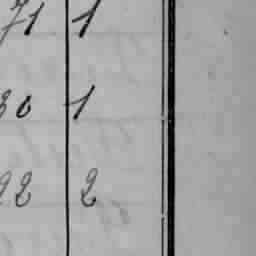 71 1
30 1
22 2